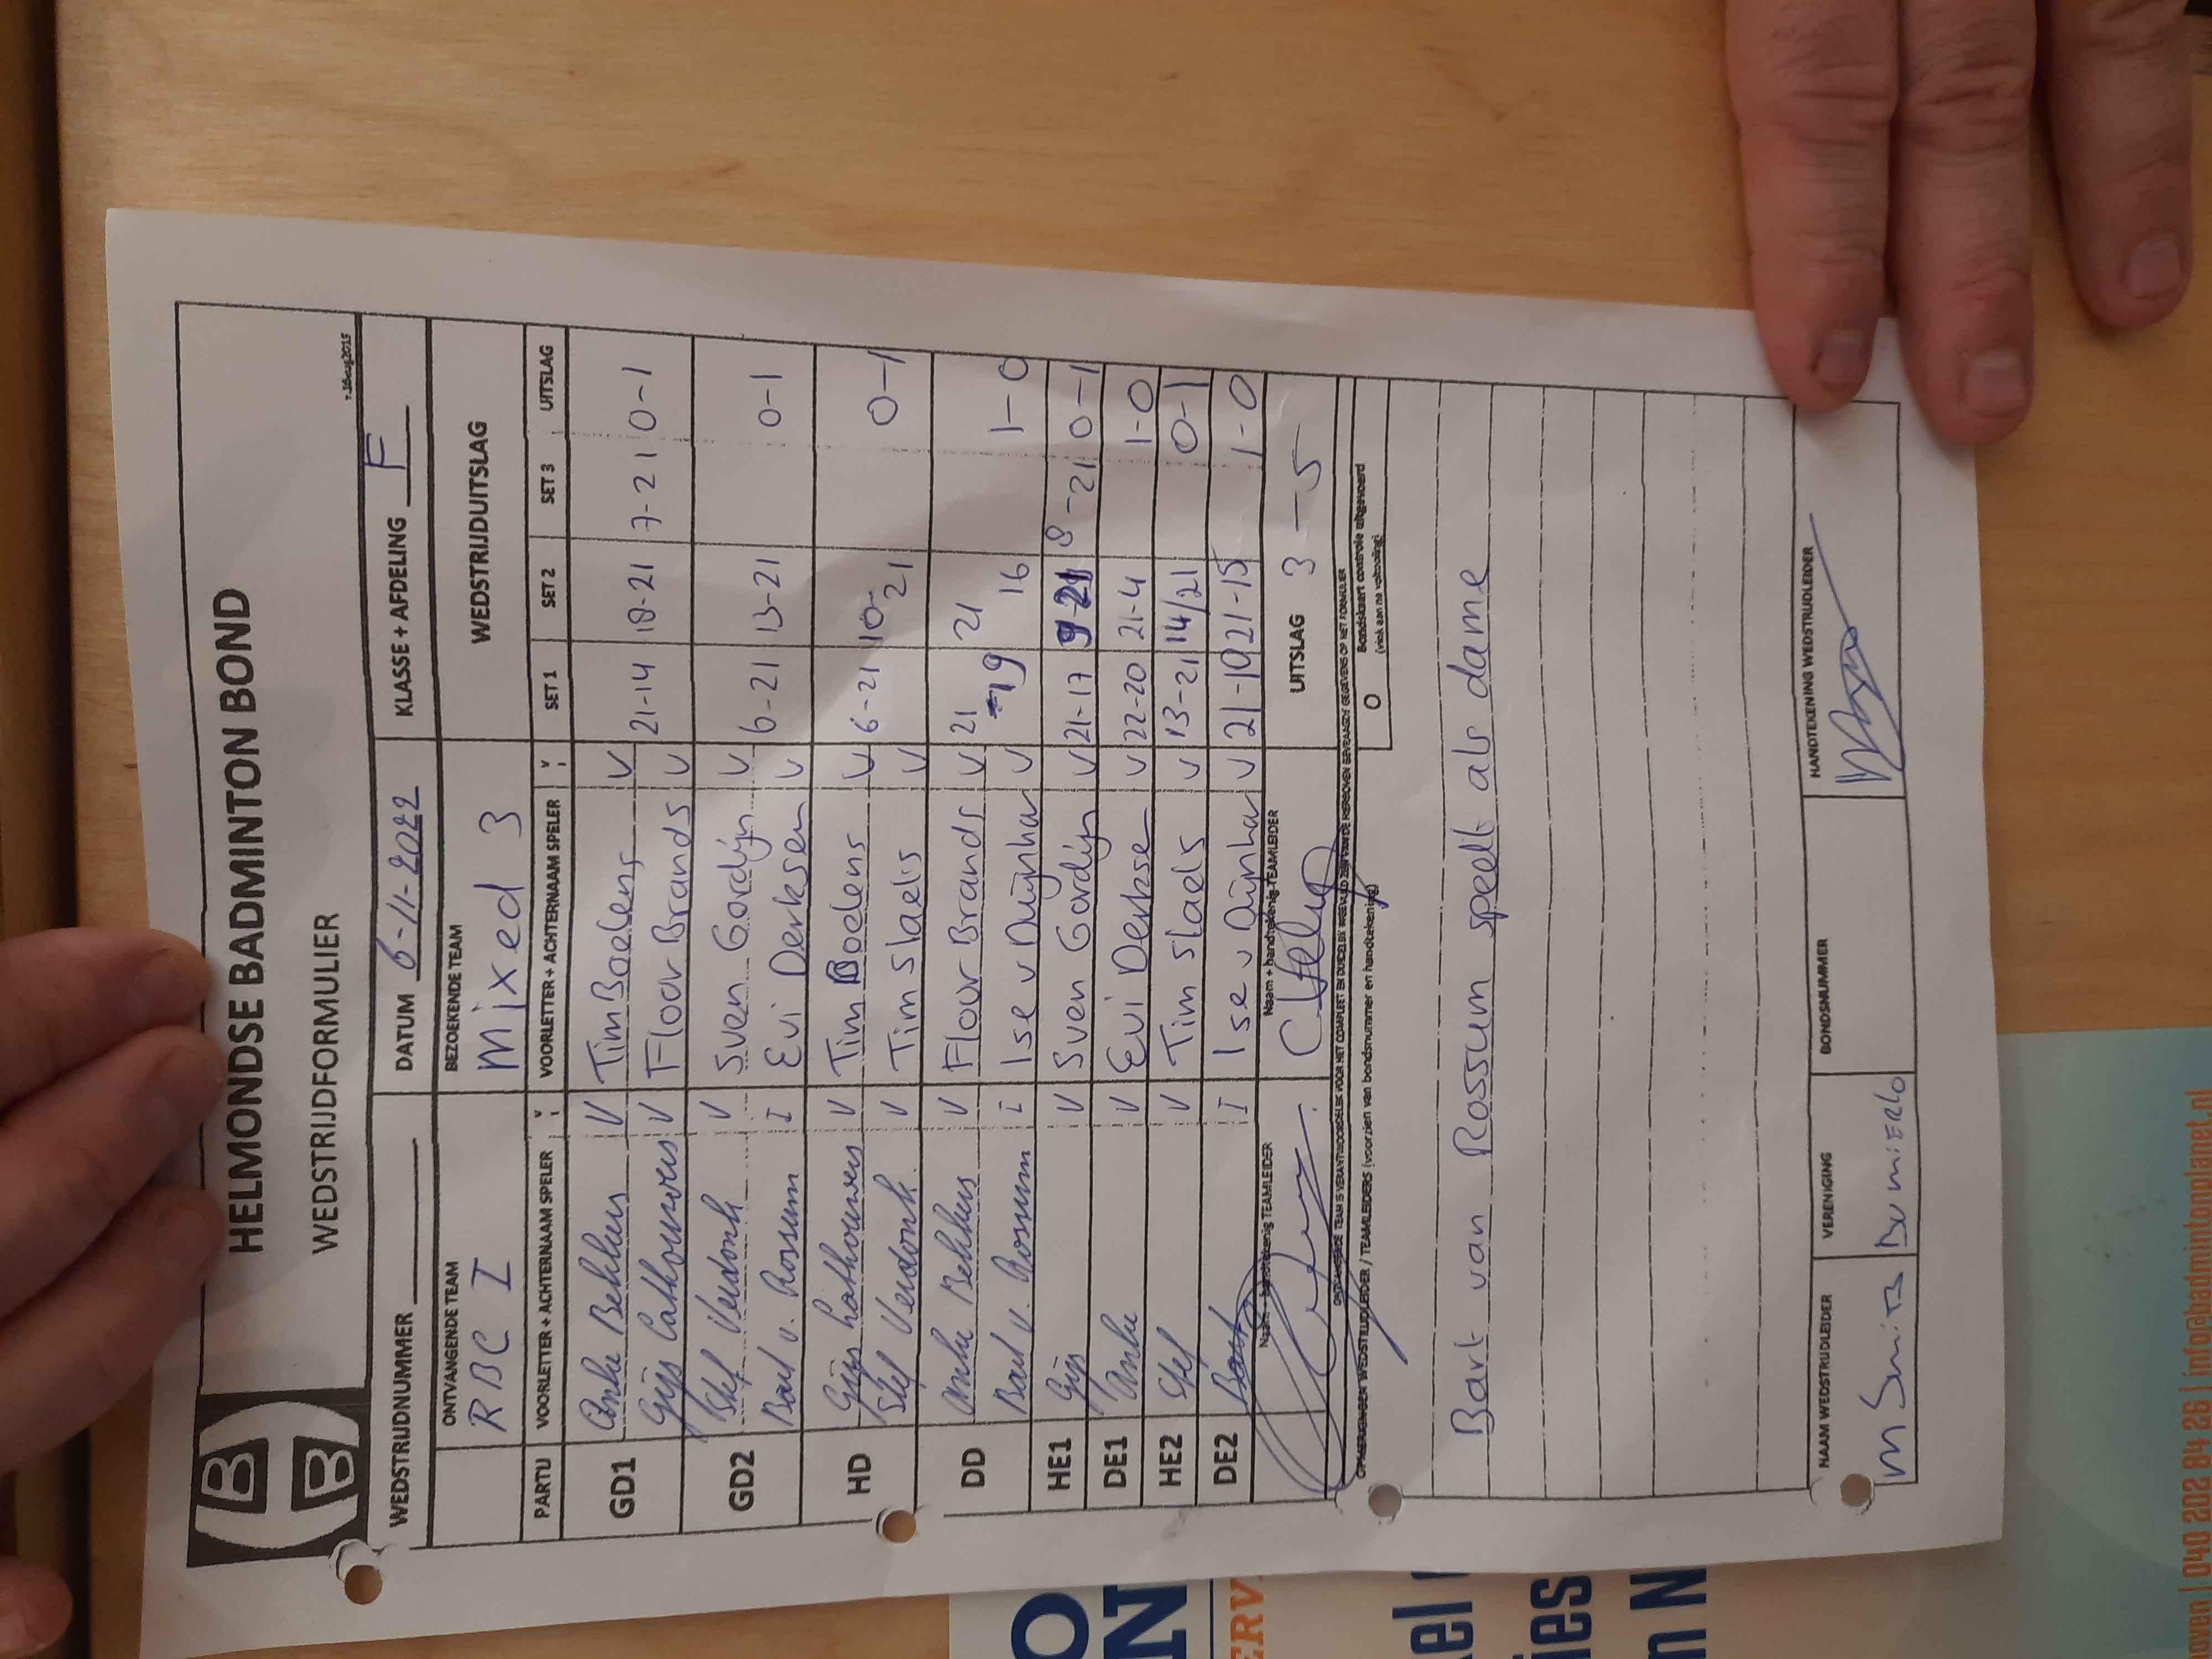 HELMONDSE BADMINTON BOND
WEDSTRIJDFORMULIER
v.16aug2015
WEDSTRIJDNUMMER
DATUM 6-11-2022
KLASSE + AFDELING F
ONTVANGENDE TEAM
RBC I
BEZOEKENDE TEAM
Mixed 3
WEDSTRIJDUITSLAG
PARTIJ VOORLETTER + ACHTERNAAM SPELER VOORLETTER + ACHTERNAAM SPELER SET 1 SET 2 SET 3 UITSLAG
GD1 Anke Bekkers V Tim Boelens V
Gijs Cathouwers V Floor Brands V 21-14 18-21 7-21 0-1
GD2 Stef Verdonk V Sven Gordijn V
Bart v. Rossum I Evi Derksen V 6-21 13-21 0-1
HD Gijs Cathouwers V Tim Boelens V 6-21 10-21 0-1
Stef Verdonk V Tim Slaels V
DD Anke Bekkers V Floor Brands V 21 21
Bart v. Rossum I Ise v Duijnhov V 19 16 1-0
HE1 Gijs V Sven Gordijn V 21-17 9-21 8-21 0-1
DE1 Anke V Evi Derksen V 22-20 21-4 1-0
HE2 Stef V Tim Slaels V 13-21 14/21 0-1
DE2 Bart I Ise v Duijnhov V 21-19 21-15 1-0
Naam + handtekenig TEAMLEIDER
Naam + handtekenig TEAMLEIDER
UITSLAG 3-5
ONTVANGENDE TEAM IS VERANTWOORDELIJK VOOR HET COMPLEET EN DUIDELIJK INGEVULD ZIJN VAN DE HIERBOVEN GEVRAAGDE GEGEVENS OP HET FORMULIER
O Bondskaart controle uitgevoerd
(vink aan na voltooiing)
OPMERKINGEN WEDSTRIJDLEIDER / TEAMLEIDERS (voorzien van bondsnummer en handtekening)
Bart van Rossum speelt als dame
NAAM WEDSTRIJDLEIDER
VERENIGING
BONDSNUMMER
HANDTEKENING WEDSTRIJDLEIDER
M Smits
BV MIERLO
ERV
oven | 040 202 84 26 | info@badmintonplanet.nl